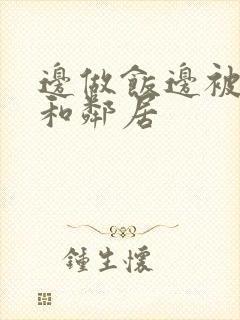 邊做飯邊被
和鄰居
鍾生懷